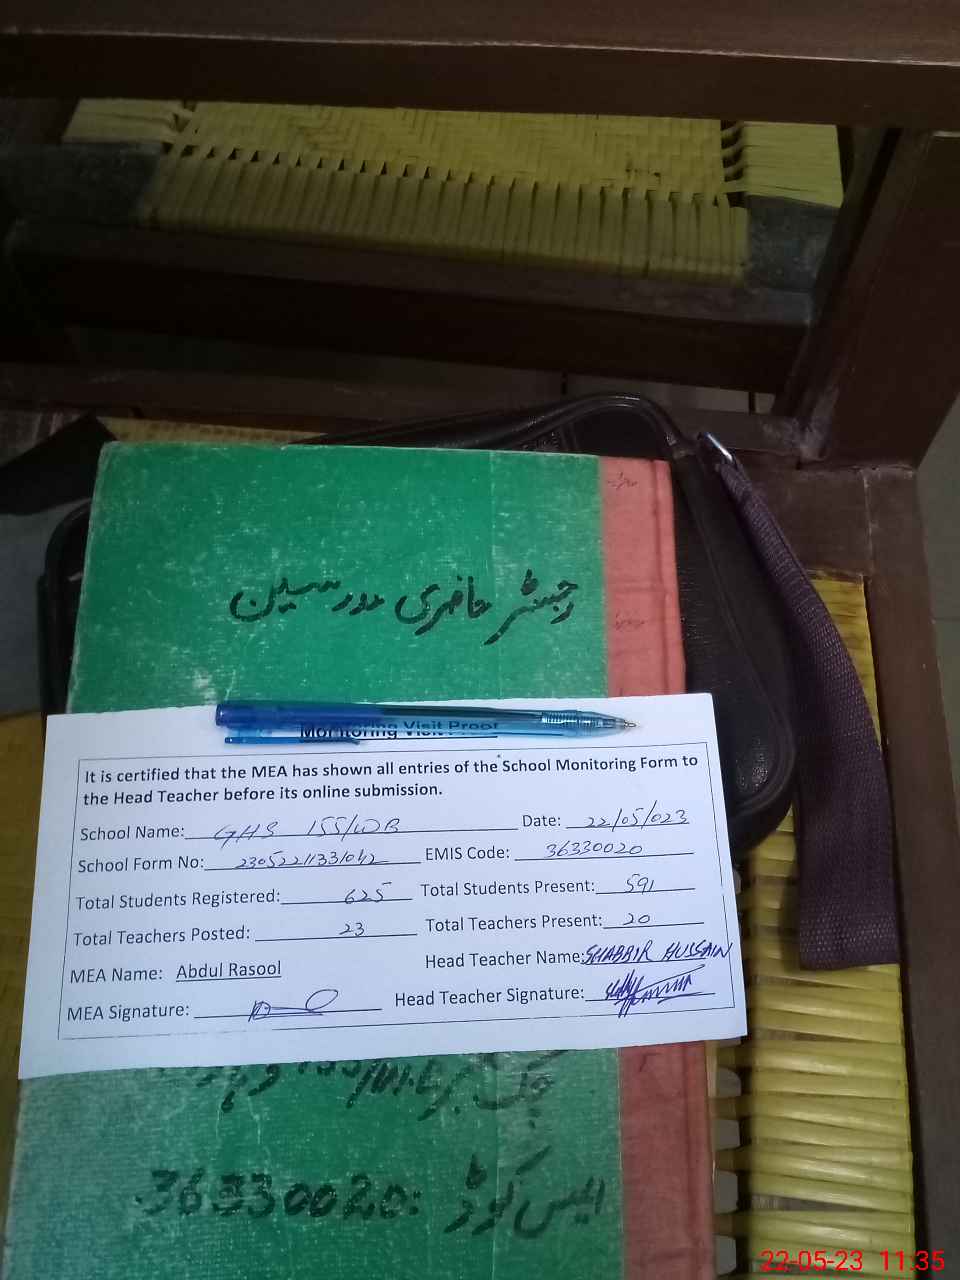 رجسٹر حاضری مدرسین
Monitoring Visit Proof
It is certified that the MEA has shown all entries of the School Monitoring Form to
the Head Teacher before its online submission.
School Name: GHS 155/WB Date: 22/05/023
School Form No: EMIS Code: 36330020
Total Students Registered: 625 Total Students Present: 591
Total Teachers Posted: 23 Total Teachers Present: 20
MEA Name: Abdul Rasool Head Teacher Name: SHABBIR HUSSAIN
MEA Signature: Head Teacher Signature:
ایمس کوڈ: 36330020
22-05-23 11:35